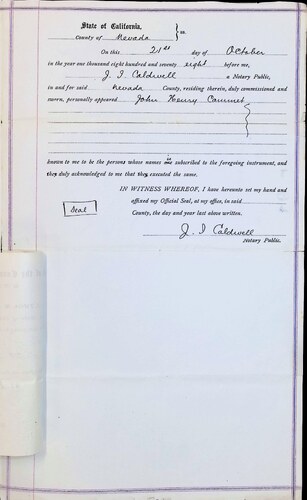 State of California,
County of Nevada } ss.
On this 21st day of October
in the year one thousand eight hundred and seventy eight before me,
J. I. Caldwell a Notary Public,
in and for said Nevada County, residing therein, duly commissioned and
sworn, personally appeared John Henry
known to me to be the persons whose names is subscribed to the foregoing instrument, and
they duly acknowledged to me that they executed the same.
IN WITNESS WHEREOF, I have hereunto set my hand and
affixed my Official Seal, at my office, in said
Seal
County, the day and year last above written.
J. I Caldwell
Notary Public.